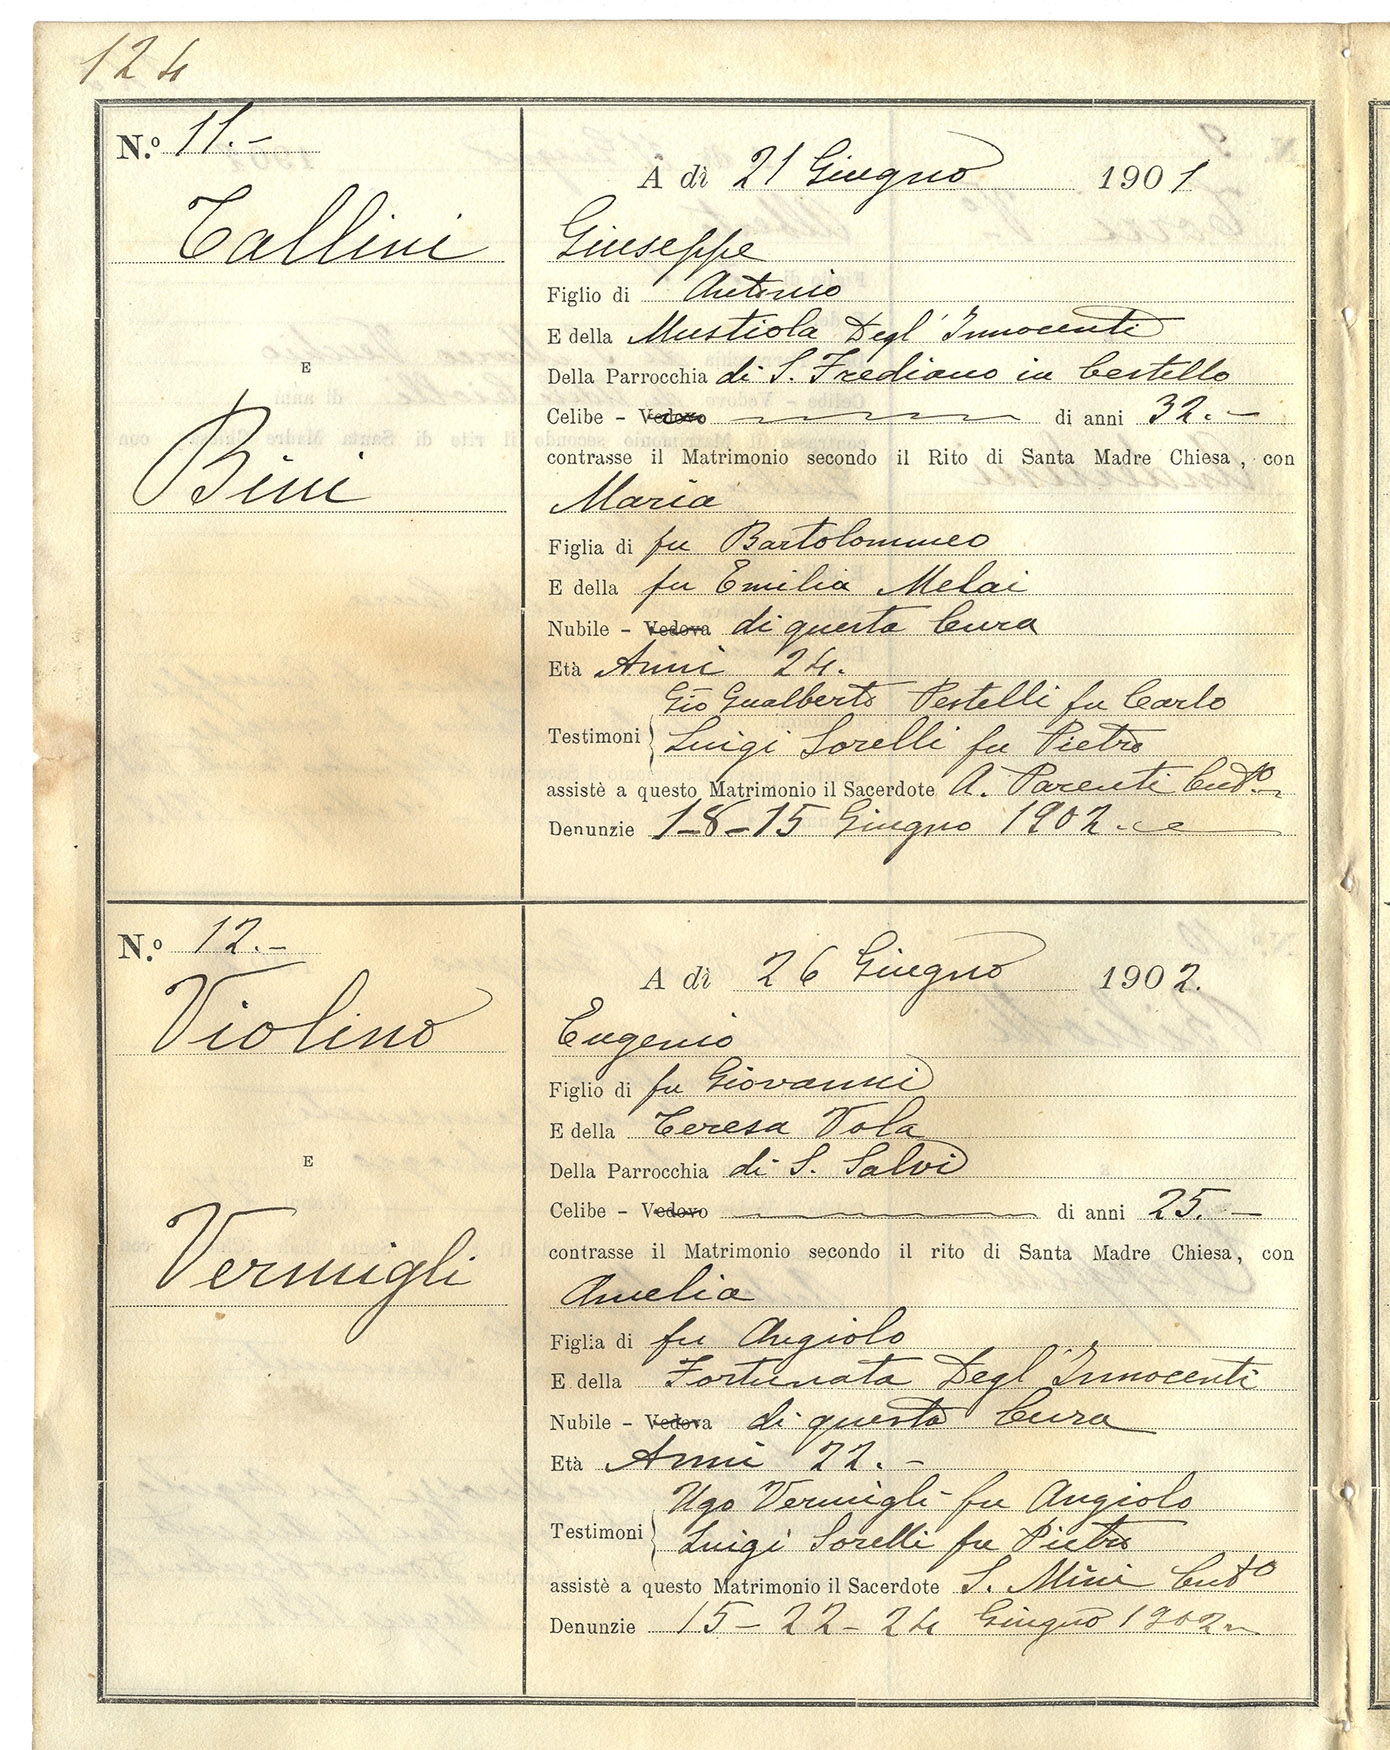 124
N.º 11.-
Tallini
E
Bini
A dì 21 Giugno 1901
Giuseppe
Figlio di Antonio
E della Mustiola Degl' Innocenti
Della Parrocchia di S. Frediano in Cestello
Celibe - Vedovo di anni 32.-
contrasse il Matrimonio secondo il Rito di Santa Madre Chiesa, con
Maria
Figlia di fu Bartolommeo
E della fu Emilia Melai
Nubile - Vedova di questa Cura
Età Anni 24.
Gio Gualberto Pestelli fu Carlo
Testimoni Luigi Sorelli fu Pietro
assistè a questo Matrimonio il Sacerdote A. Parenti
Denunzie 1-8-15 Giugno 1902.
N.º 12.-
Violino
E
Vermigli
A dì 26 Giugno 1902.
Eugenio
Figlio di fu Giovanni
E della Teresa Vola
Della Parrocchia di S. Salvi
Celibe - Vedovo di anni 25.-
contrasse il Matrimonio secondo il rito di Santa Madre Chiesa, con
Amelia
Figlia di fu Angiolo
E della Fortunata Degl' Innocenti
Nubile - Vedova di questa Cura
Età Anni 22.-
Ugo Vermigli fu Angiolo
Testimoni Luigi Sorelli fu Pietro
assistè a questo Matrimonio il Sacerdote S. Mini
Denunzie 15-22-24 Giugno 1902